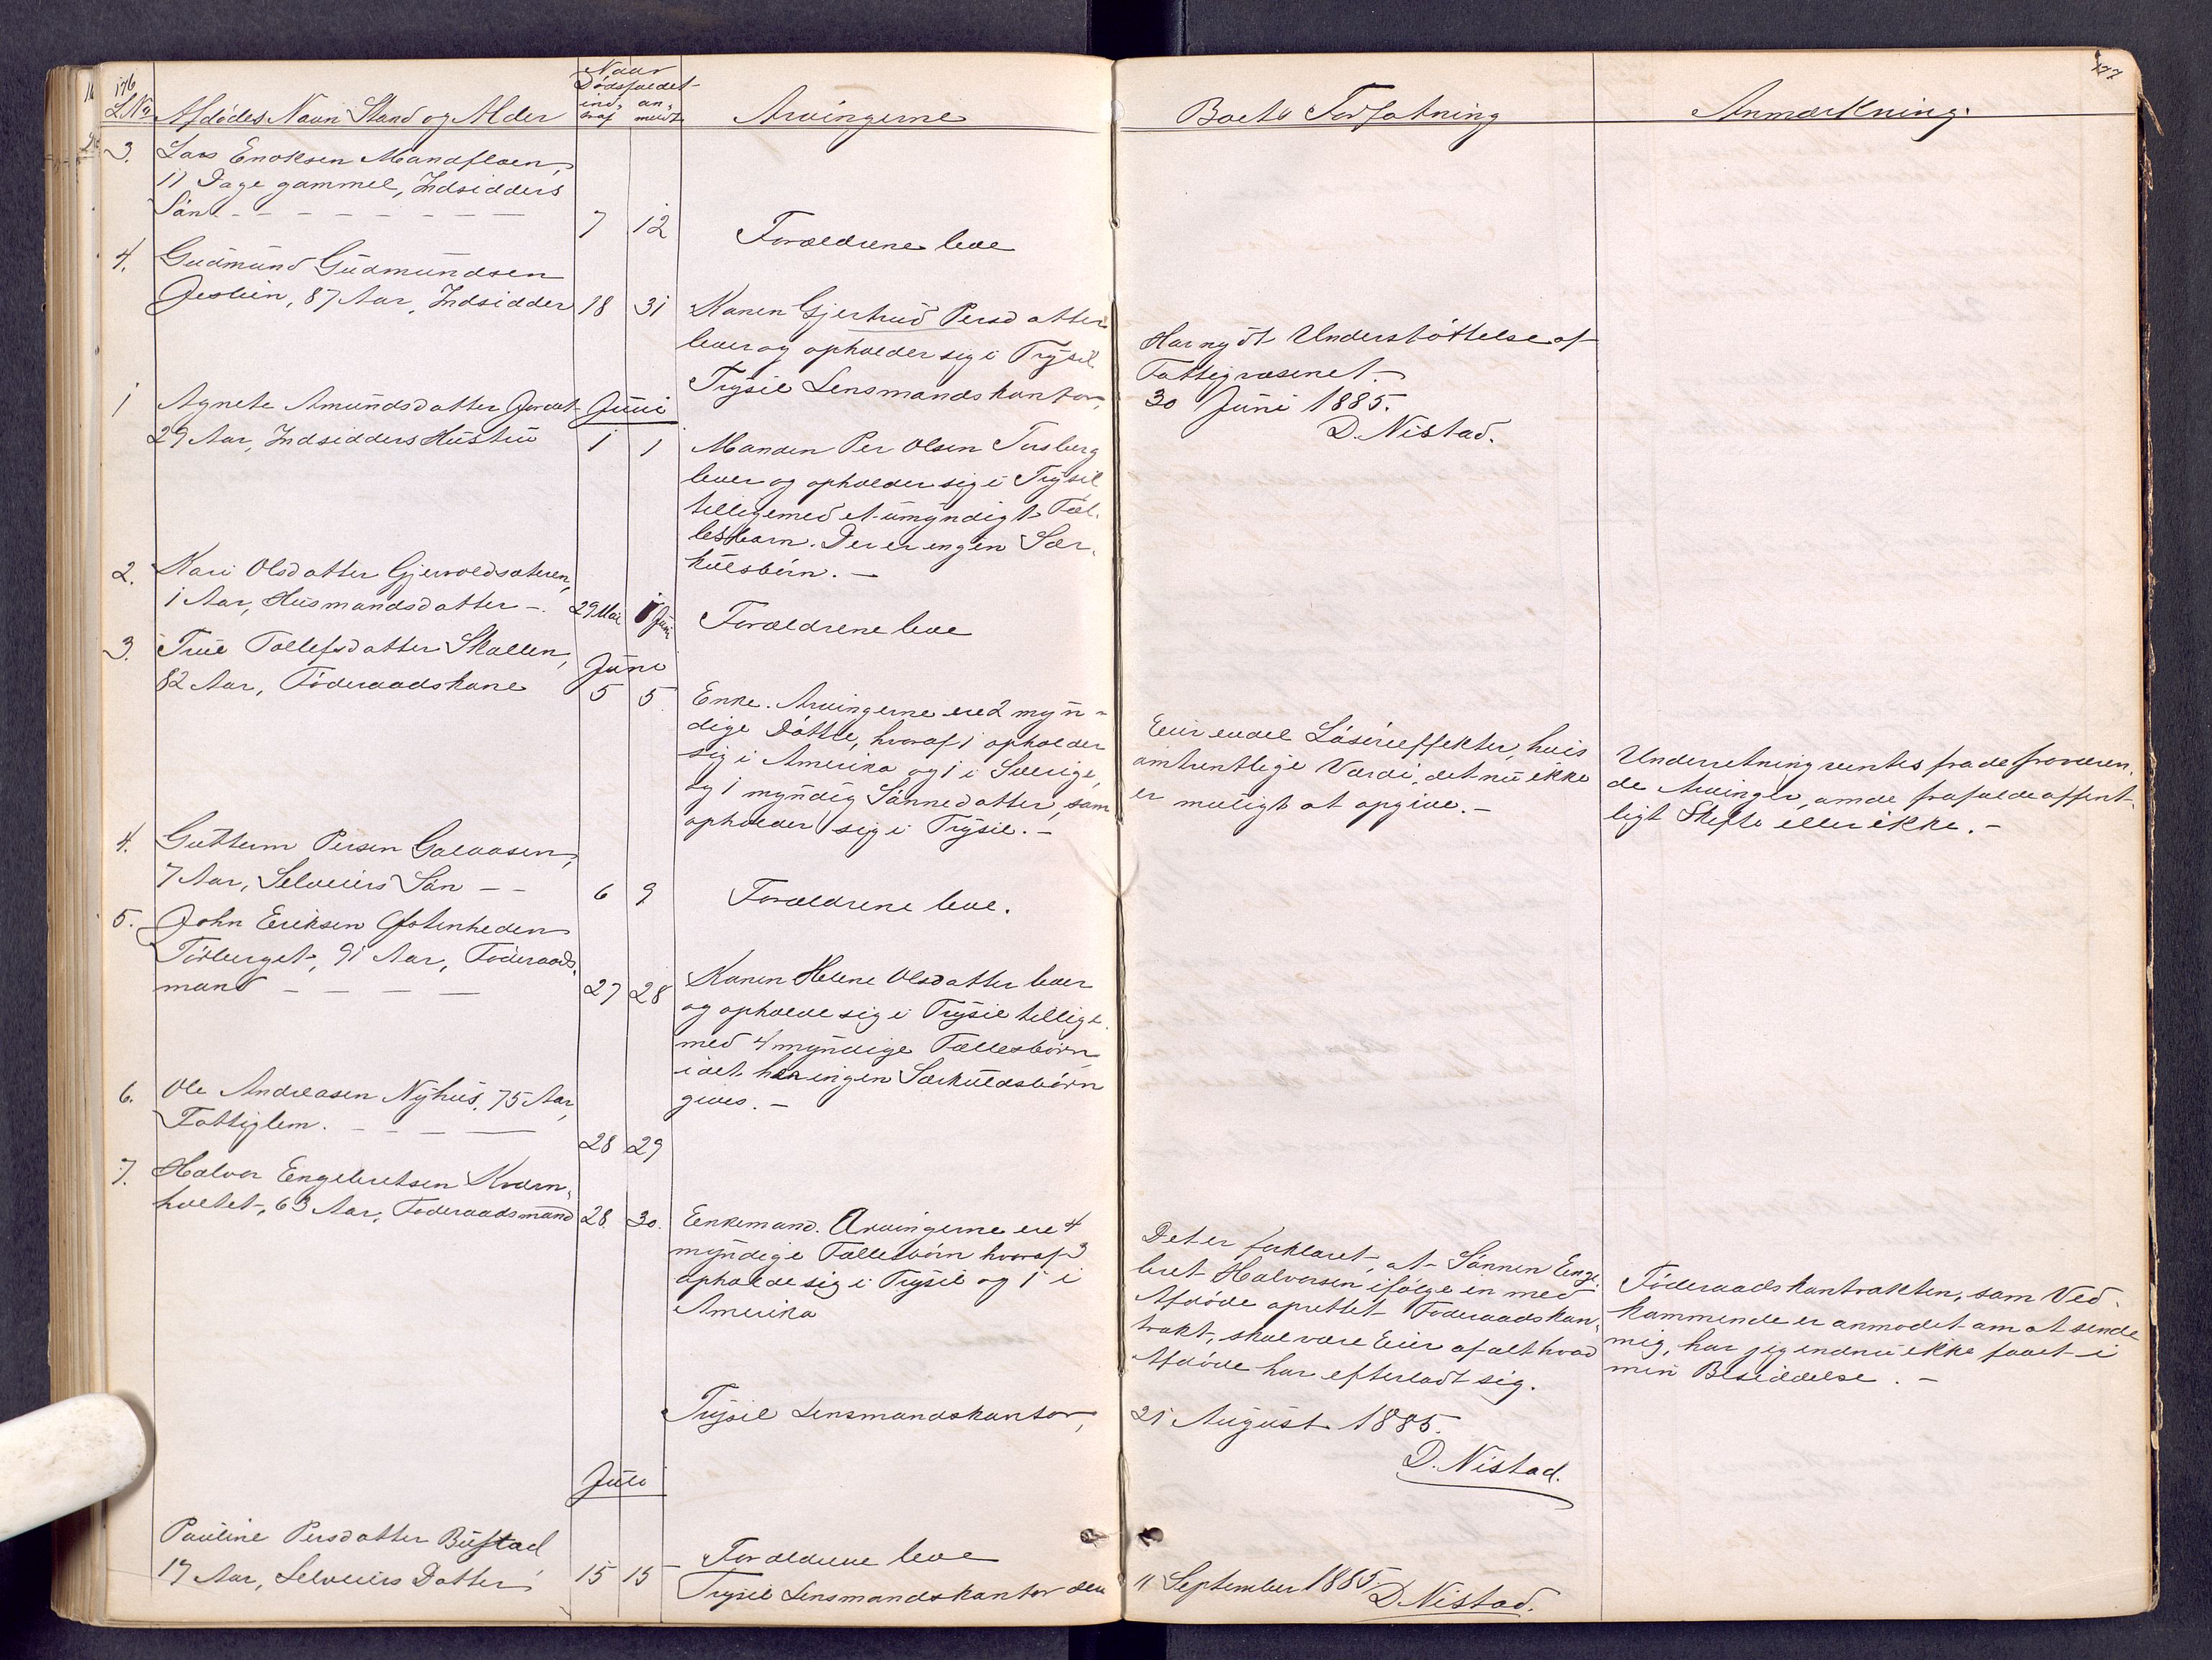 176
L No
Afdødes Navn Stand og Alder
Naar
Dødsfaldet
ind- an-
traf meldt
Arvingerne
3. Lars Enoksen Mandfloen,
11 Dage gammel, Indsidders
Søn - - - - - - - 7 12 Forældrene leve
4. Gudmund Gudmundsen
Jeslien, 87 Aar, Indsidder 18 31 Konen Gjertrud Persdatter
lever og opholder sig i Trysil
Trysil Lensmandskontor,
1 Agnete Amundsdatter Juni
29 Aar, Indsidders Hustru 1 1 Manden Per Olsen Torsberg
lever og opholder sig i Trysil
tilligemed et umyndigt Fæl-
lesbarn. Der er ingen Sær-
kulsbørn. -
2. Kari Olsdatter Gjervoldsæteren,
1 Aar, Husmandsdatter -. 29 Mai 1 Juni Forældrene leve
3. True Tollefsdatter Skallen, Juni
82 Aar, Føderaadskone 5 5 Enke. Arvingerne ere 2 myn-
dige Døttre, hvoraf 1 opholder
sig i Amerika og 1 i Sverige,
og 1 myndig Sønnedatter, som
opholder sig i Trysil. -
4. Guttorm Persen Galaasen,
7 Aar, Selveiers Søn - - 6 9 Forældrene leve.
5. John Eriksen Østenheden
Tørberget, 91 Aar, Føderaads-
mand - - - - 27 28 Konen Helene Olsdatter lever
og opholde sig i Trysil tillige-
med 4 myndige Fællesbørn
idet her ingen Særkuldsbørn
gives. -
6. Ole Andreasen Nyhus, 75 Aar,
Fattiglem. - - - - 28 29
7. Halvor Engebretsen Kværn-
holtet, 63 Aar, Føderaadsmand 28 30. Enkemand. Arvingerne ere 4
myndige Fællesbørn hvoraf 3
opholde sig i Trysil og 1 i
Amerika
Trysil Lensmandskontor,
Juli
Pauline Persdatter Bustad
17 Aar, Selveiers Datter 15 15 Forældrene leve
Trysil Lensmandskontor den
177
Boets Forfatning
Anmærkning.
Har nydt Understøttelse af
Fattigvæsenet. -
30 Juni 1885.
D. Nistad.
Eier endel Løsøreeffekter, hvis
omtrentlige Værdi, det nu ikke
er muligt at opgive. -
Underretning ventes fra de fraværen-
de Arvinger, om de frafalde offent-
ligt Skifte eller ikke. -
Det er forklaret, at Sønnen Enge-
bret Halvorsen ifølge en med
Afdøde oprettet Føderaadskon-
trakt, skal være Eier af alt hvad
Afdøde har efterladt sig.
Føderaadskontrakten, som Ved-
kommende er anmodet om at sende
mig, har jeg endnu ikke faaet i
min Besiddelse. -
21 August 1885.
D. Nistad.
11 September 1885 D. Nistad.